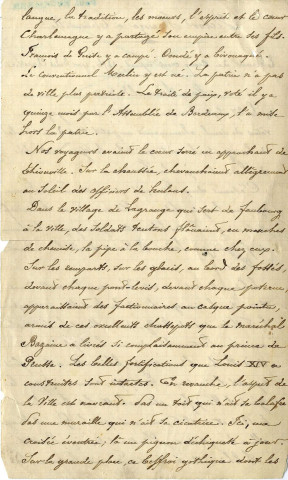 langue, la tradition, les mœurs, l'esprit et le cœur
Charlemagne y a partagé son empire entre ses fils.
François de Guise y a campé. Condé y a bivouaqué.
Le conventionnel Merlin y est né. La patrie n'a pas
de ville plus patriote. Le traité de paix, voté il y a
quinze mois par l'Assemblée de Bordeaux, l'a mise
hors la patrie.
Nos voyageurs avaient le cœur serré en approchant de
Thionville. Sur la chaussée, chevauchaient allègrement
au soleil des officiers de hulans.
Dans le village de Lagrange qui sert de faubourg
à la ville, des soldats teutons flânaient, en manches
de chemise, la pipe à la bouche, comme chez eux.
Sur les remparts, sur les glacis, au bord des fossés,
devant chaque pont-levis, devant chaque poterne,
apparaissaient des factionnaires au casque pointu,
armés de ces excellents chassepots que le maréchal
Bazaine a livrés si complaisamment au prince de
Prusse. Les belles fortifications que Louis XIV a
construites sont intactes. En revanche, l'aspect de
la ville est navrant. Pas un toit qui n'ait sa balafre
Pas une muraille qui n'ait sa cicatrice. Ici, une
croisée éventrée, là un pignon déchiqueté à jour.
Sur la grande place, ce beffroi gothique dont les